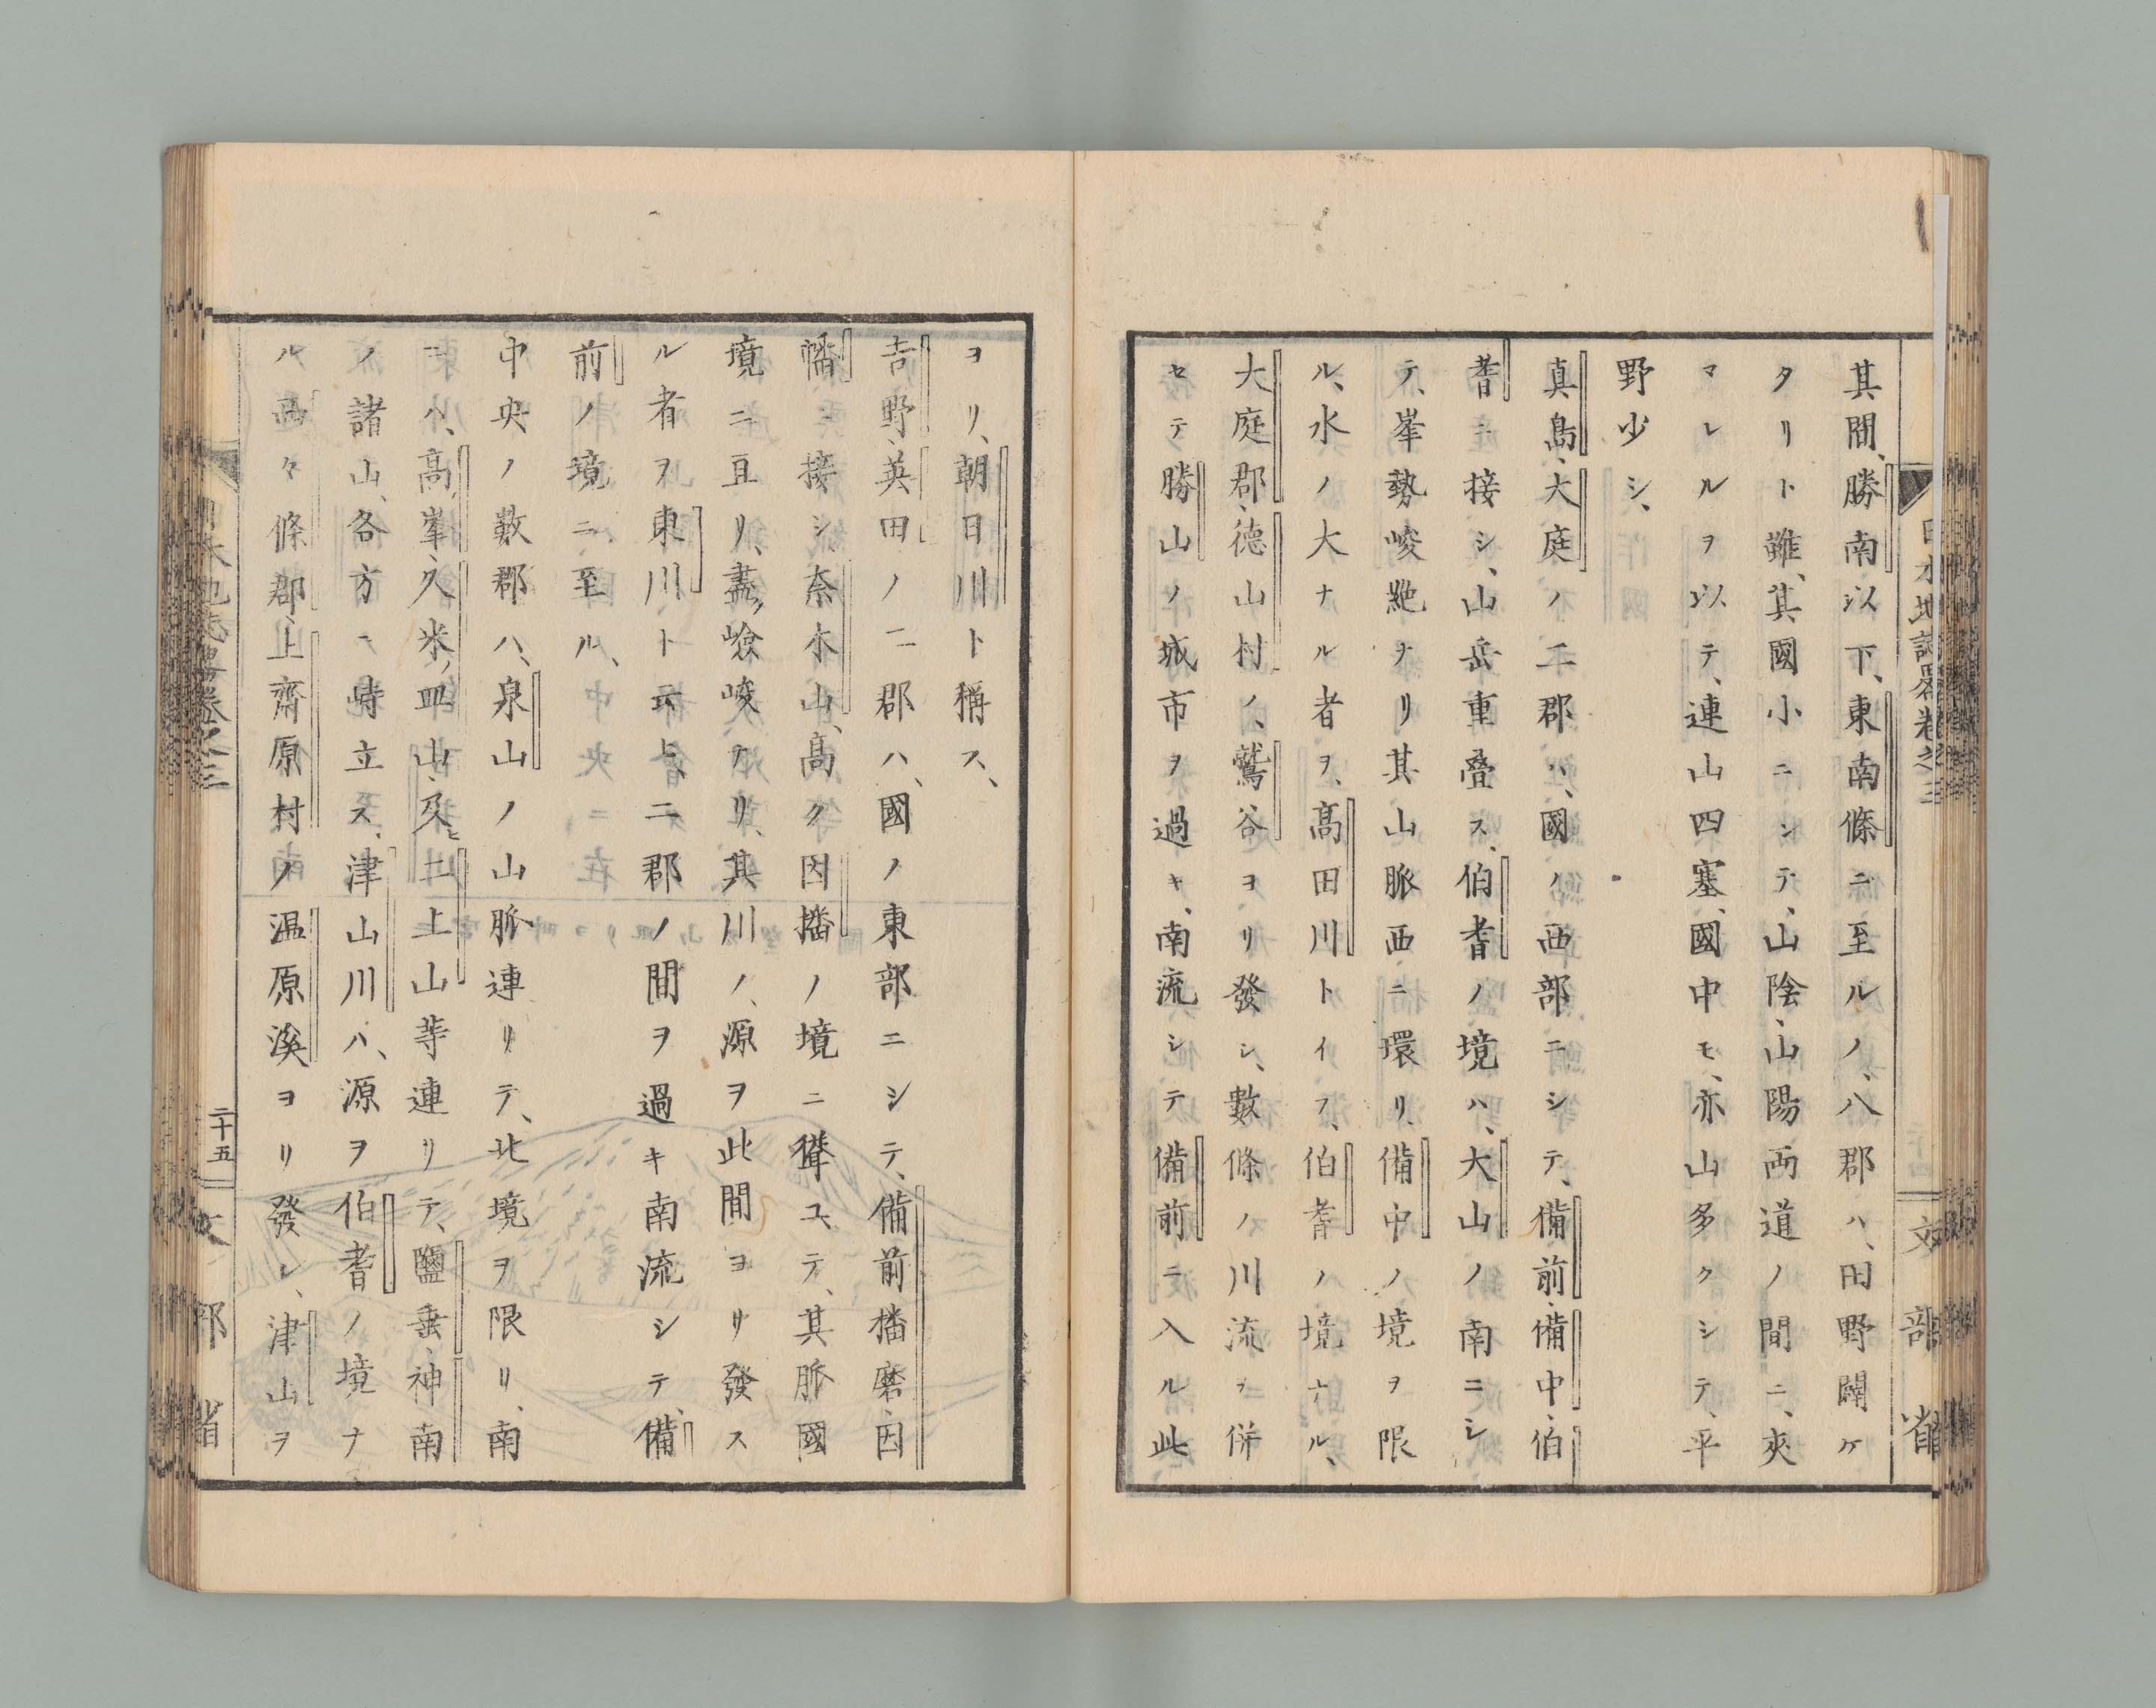 日本地誌畧卷之三
文部省
其間、勝南以下、東南條ニ至ルノ、八郡ハ、田野闢ケ
タリト雖、其國小ニシテ、山陰、山陽兩道ノ間ニ、夾
マレルヲ以テ、連山四塞、國中モ、亦山多クシテ、平
野少シ、
真島、大庭ノ二郡ハ、國ノ西部ニシテ、備前、備中、伯
耆ニ接シ、山岳重疊ス、伯耆ノ境ハ、大山ノ南ニシ
テ、峯勢峻絶ナリ其山脈西ニ環リ、備中ノ境ヲ限
ル、水ノ大ナル者ヲ、髙田川トイフ、伯耆ノ境ナル、
大庭郡、德山村ノ、鷲谷ヨリ發シ、數條ノ川流ヲ併
セテ勝山ノ城市ヲ過キ、南流シテ備前ニ入ル此
ヲリ、朝日川ト稱ス、
吉野、英田ノ二郡ハ、國ノ東部ニシテ、備前播磨、因
幡ニ接シ、奈木山、髙ク因播ノ境ニ聳ユテ、其脈國
境ニ亘リ、盡ク嶮峻ナリ、其川ノ、源ヲ此間ヨリ發ス
ル者ヲ東川ト云ヒ、二郡ノ間ヲ過キ南流シテ、備
前ノ境ニ至ル、
中央ノ數郡ハ、泉山ノ山脈連リテ、北境ヲ限リ、南
ニハ、髙峯、久米ノ皿山、及ヒ二上山等連リテ、鹽垂、神南
ノ諸山、各方ニ峙立ス、津山川ハ、源ヲ伯耆ノ境ナ
ル西々條郡、上齋原村ノ温原溪ヨリ發シ、津山ヲ
日本地誌畧卷之三
二十五
文部省